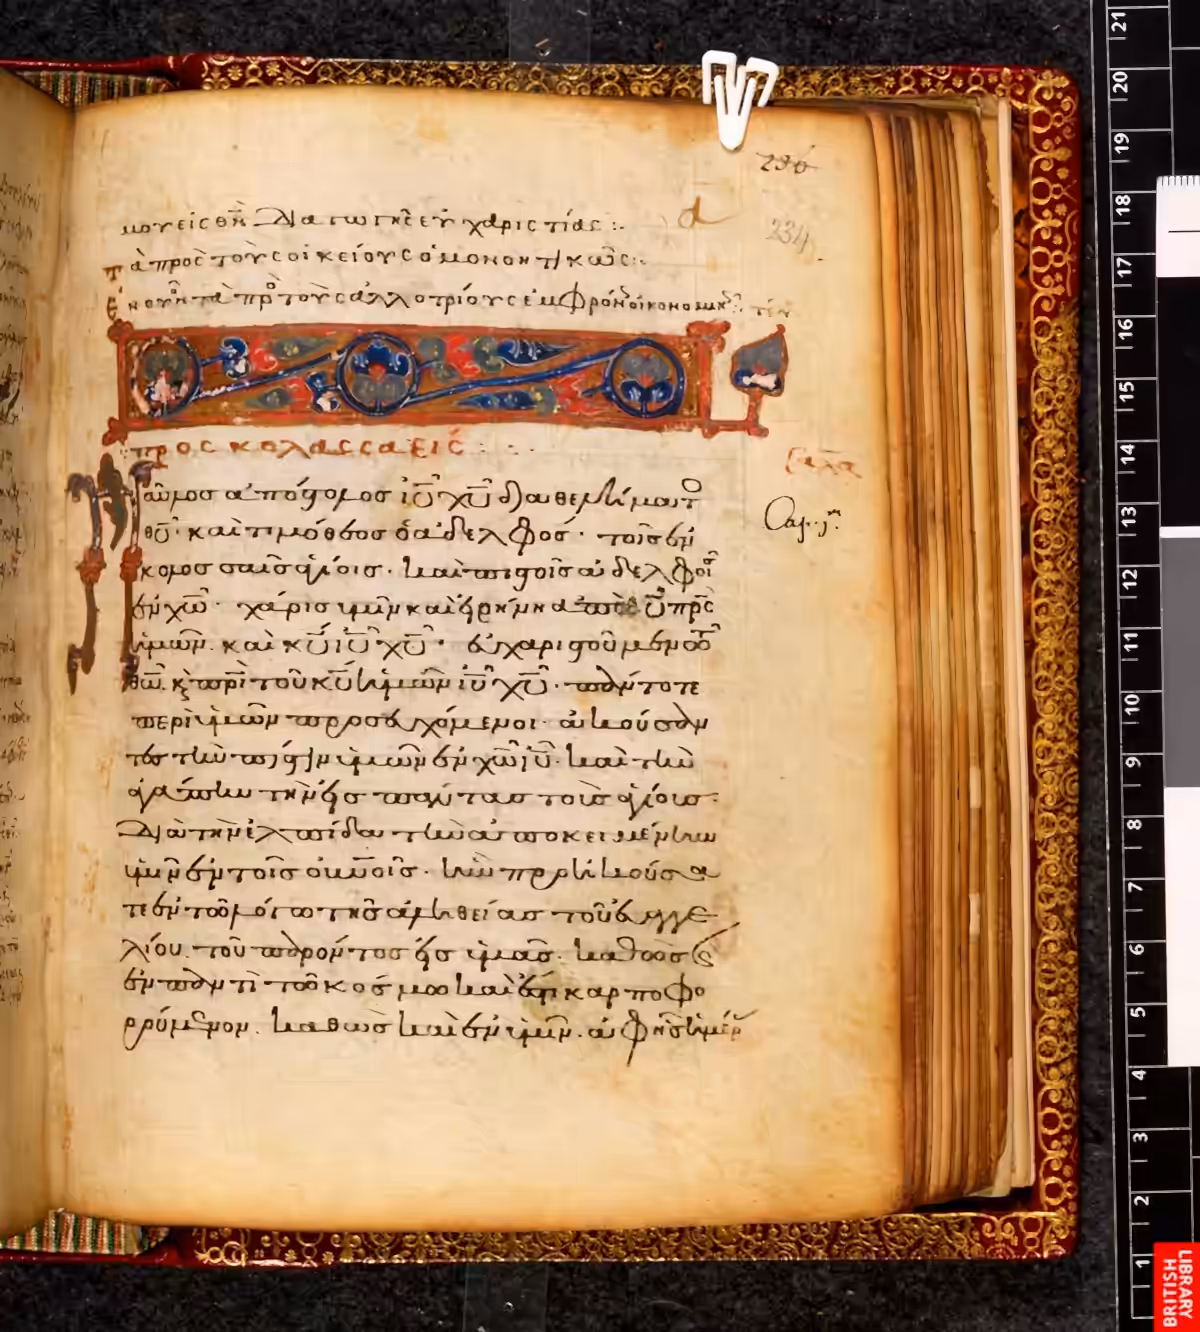 236
234
τα προς τους οικείους ομονοητικως:
προς κολασσαεις
Παῦλοσ ἀπόστολοσ ιυ χυ δια θελήματο
θυ· καὶ τιμόθεοσ ὁ ἀδελφόσ· τοῖσ ἐν
κολοσσαῖσ ἁγίοισ· καὶ πιστοῖσ ἀδελφοῖ
ἐν χω· χάρισ ὑμῖν καὶ εἰρήνη ἀπὸ θυ πρσ
ἡμῶν. καὶ κυ ιυ χυ· εὐχαριστοῦμεν τῶ
θω κ πρι τοῦ κυ ἡμῶν ιυ χυ· πάντοτε
περὶ ὑμῶν προσευχόμενοι· ἀκούσαν
τεσ τὴν πίστιν ὑμῶν ἐν χω ιυ· καὶ τὴν
ἀγάπην τὴν εἰσ πάντασ τοὺσ ἁγίουσ·
Διὰ τὴν ἐλπίδα τὴν ἀποκειμένην
ὑμῖν ἐν τοῖσ οὐνοῖσ· ἣν προηκούσα
τε ἐν τῶ λόγω τῆσ ἀληθείασ τοῦ εὐαγγε
λίου. τοῦ παρόντοσ εἰσ ὑμᾶσ· καθὼσ
ἐν παντὶ τῶ κόσμω καὶ ἐστὶ καρποφο
ρούμενον. καθὼσ καὶ ἐν ὑμῖν. ἀφ ἧσ ἡμέρ
21
20
19
18
17
16
15
14
13
12
11
10
9
8
7
6
5
4
3
2
1
BRITISH
LIBRARY